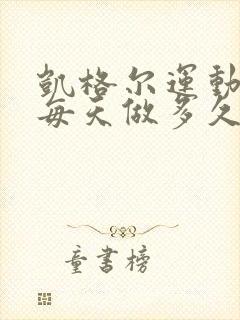 凯格尔运動
每天做多久
童書榜